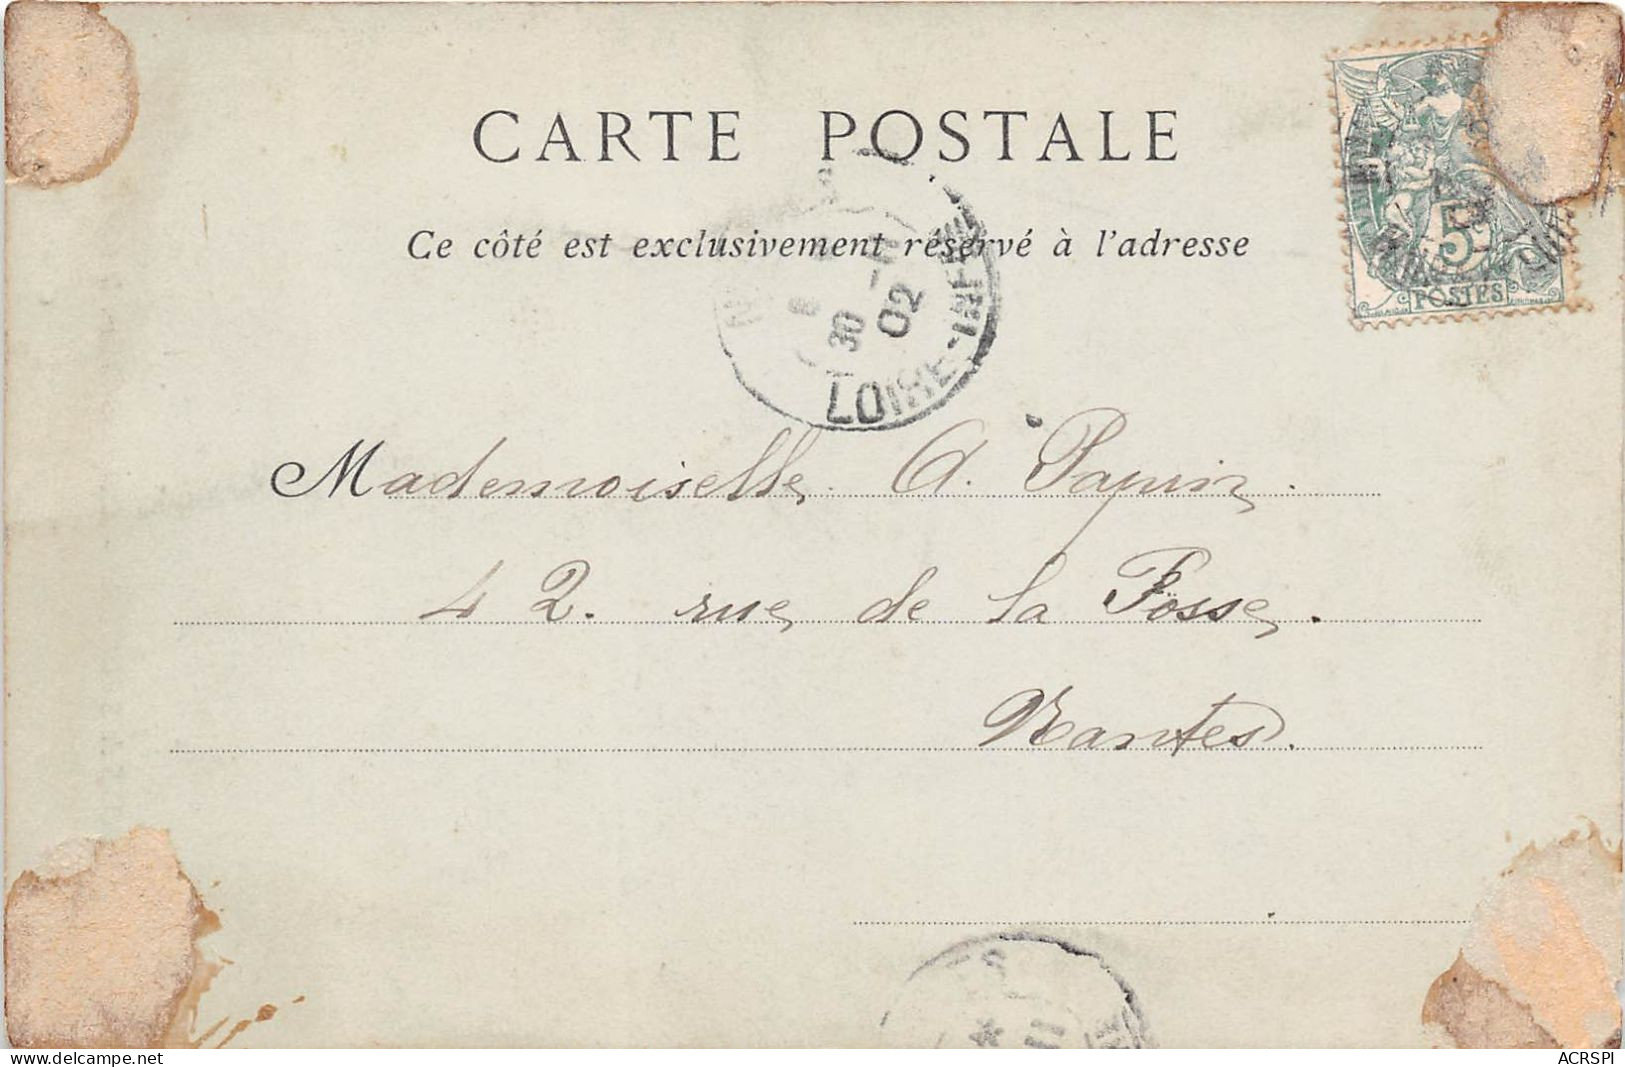 CARTE POSTALE
Ce côté est exclusivement réservé à l'adresse
5
POSTES
30
02
LOIRE-INFRE
Mademoiselle A. Papin.
42. rue de la Fosse.
Nantes.
11
delcampe.net
ACRSPI